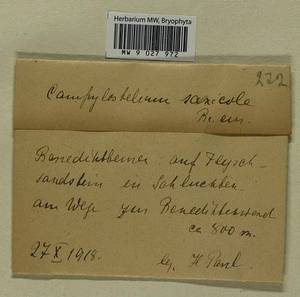 Herbarium MW, Bryophyta
MW 9 027 972
222
Campylostelium saxicola
Br. eur.
Benediktbeuern: auf Flysch-
sandstein in Schluchten
am Wege zur Benediktenwand
ca 800 m.
27 X 1918. lg. H. Paul.